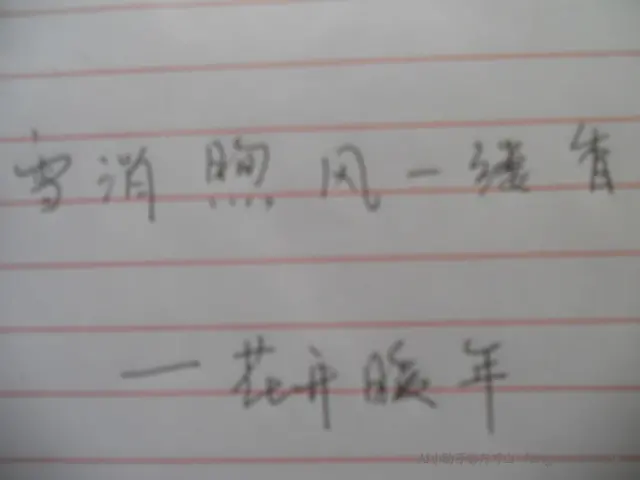 雪消煦风一缕青
一花开暖年